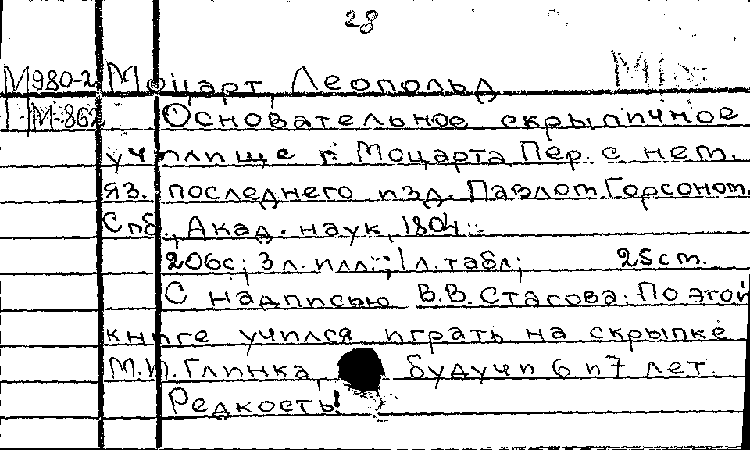 28
М980-2 Моцарт, Леопольд
Г М-862 Основательное скрыпичное
училище г. Моцарта. Пер. с нем.
яз. последнего изд. Павлом Торсоном.
Спб., Акад. наук, 1804.
206с; 3 л. илл.; 1 л. табл; 25 cm.
С надписью В.В. Стасова: По этой
книге учился играть на скрыпке
М.И. Глинка, будучи 6 и 7 лет.
Редкость!